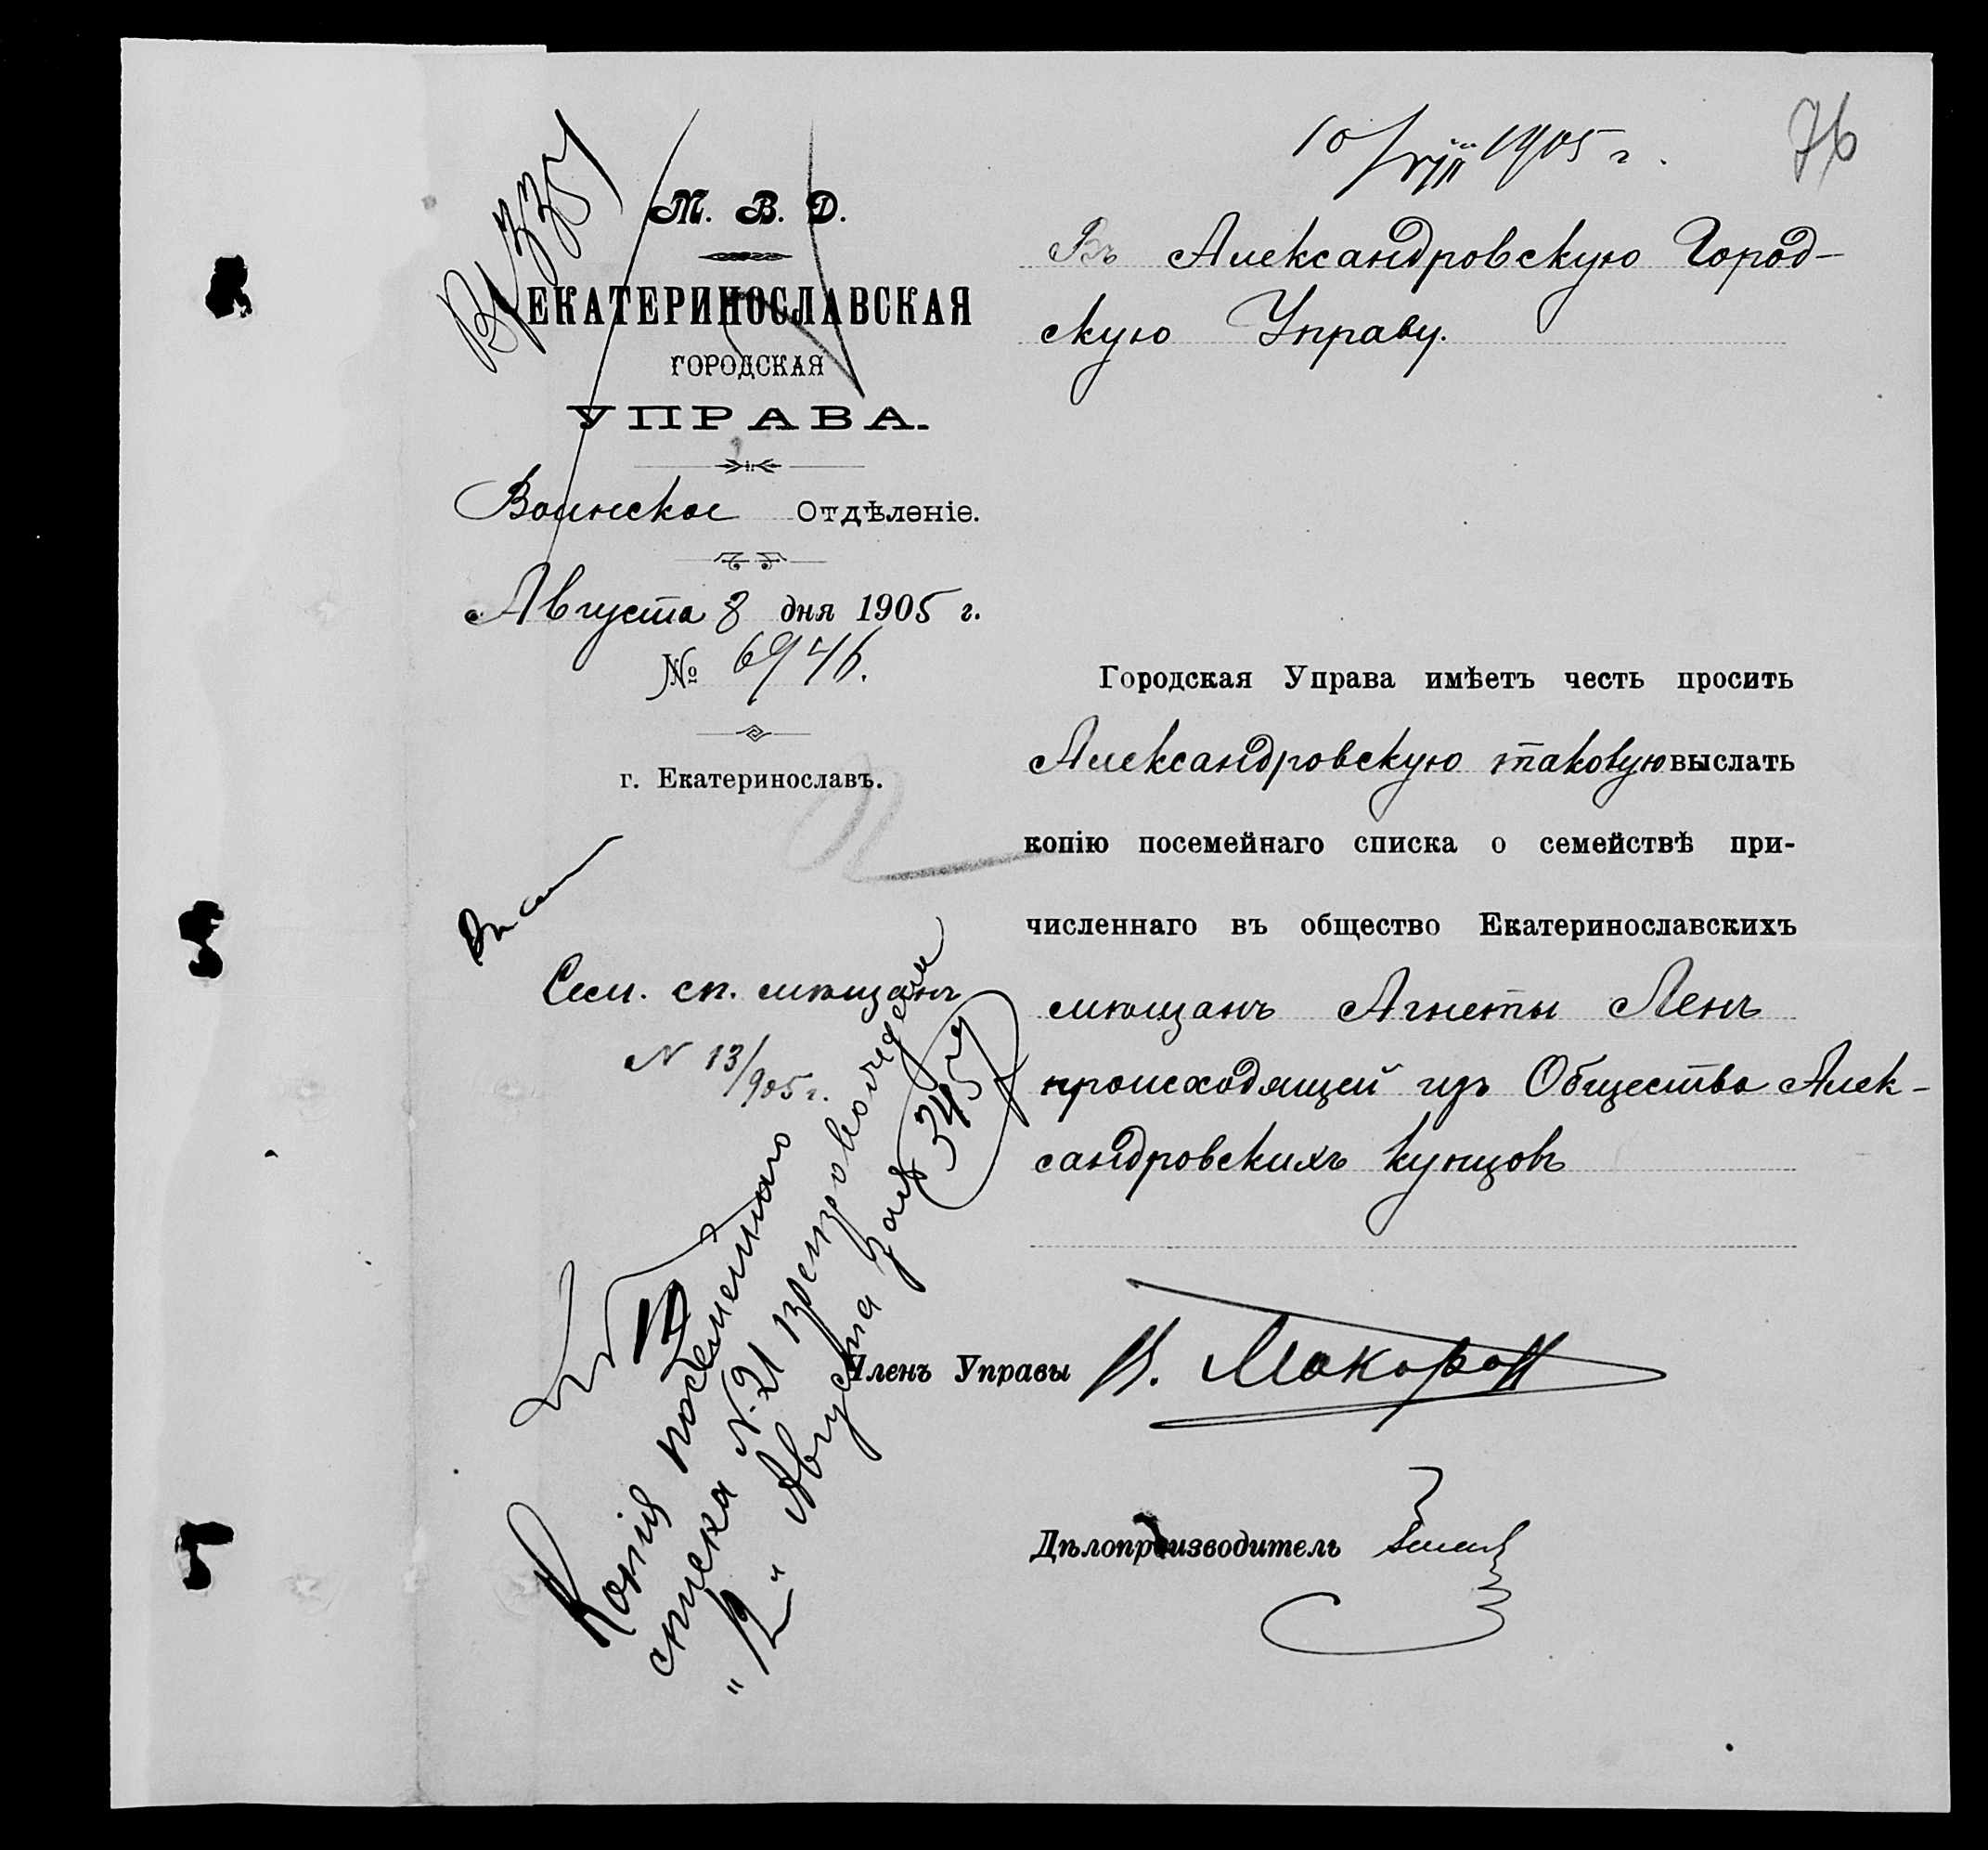 10/VIII 1905 г.
76
М. В. Д.
ЕКАТЕРИНОСЛАВСКАЯ
ГОРОДСКАЯ
УПРАВА.
Воинское Отдѣленіе.
Августа 8 дня 1905 г.
№ 6946.
г. Екатеринославъ.
Въ Александровскую Город-
скую Управу.
Городская Управа имѣетъ честь просить
Александровскую таковую выслать
копію посемейнаго списка о семействѣ при-
численнаго въ общество Екатеринославскихъ
мѣщанъ Агнеты Ленъ
происходящей изъ Общества Алек-
сандровскихъ купцовъ
Сем. сп. мѣщанъ
N 13/905 г.
Копія посемейнаго
списка N. 21 препровождена
"12" Августа за № 3457
Членъ Управы
Дѣлопроизводитель